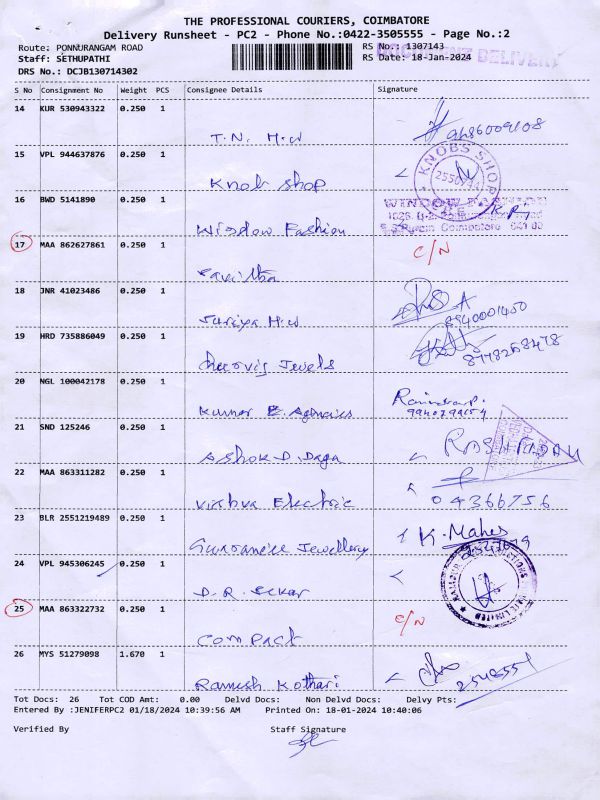 THE PROFESSIONAL COURIERS, COIMBATORE
Delivery Runsheet - PC2 - Phone No.:0422-3505555 - Page No.:2
Route: PONNURANGAM ROAD RS No.: 1307143
Staff: SETHUPATHI RS Date: 18-Jan-2024
DRS No.: DCJB130714302
S No Consignment No Weight PCS Consignee Details Signature
14 KUR 530943322 0.250 1
T.N. H.W
15 VPL 944637876 0.250 1
Knob Shop
KNOBS SHOP
16 BWD 5141890 0.250 1
Window Fashion
17 MAA 862627861 0.250 1 C/N
Savitha
18 JNR 41023486 0.250 1
Suriya H.W 8940001450
19 HRD 735886049 0.250 1
Jewels 8778268478
20 NGL 100042178 0.250 1
Kumar E. Agencies 9940799154
21 SND 125246 0.250 1
Ashok D. Daga
22 MAA 863311282 0.250 1
Vishva Electric 04366756
23 BLR 2551219489 0.250 1 K. Mahes
Jewellery
24 VPL 945306245 0.250 1
D.R. Sekar
25 MAA 863322732 0.250 1 C/N
Compact
26 MYS 51279098 1.670 1
Ramesh Kothari
Tot Docs: 26 Tot COD Amt: 0.00 Delvd Docs: Non Delvd Docs: Delvy Pts:
Entered By :JENIFERPC2 01/18/2024 10:39:56 AM Printed On: 18-01-2024 10:40:06
Verified By Staff Signature